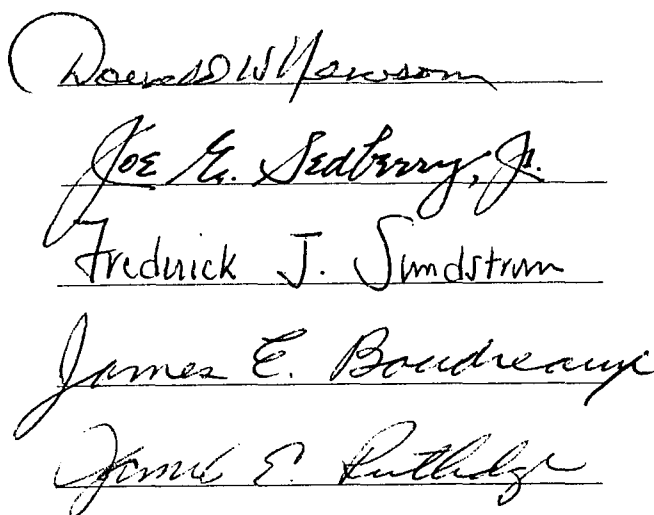 Donald W Newsom
Joe E. Sedberry, Jr.
Frederick J. Sundstrom
James E. Boudreaux
E. Rutledge